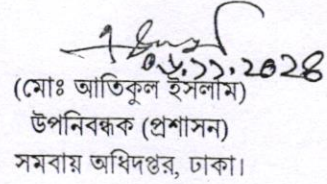 ০৮.১১.২০২৪
(মোঃ আতিকুল ইসলাম)
উপনিবন্ধক (প্রশাসন)
সমবায় অধিদপ্তর, ঢাকা।